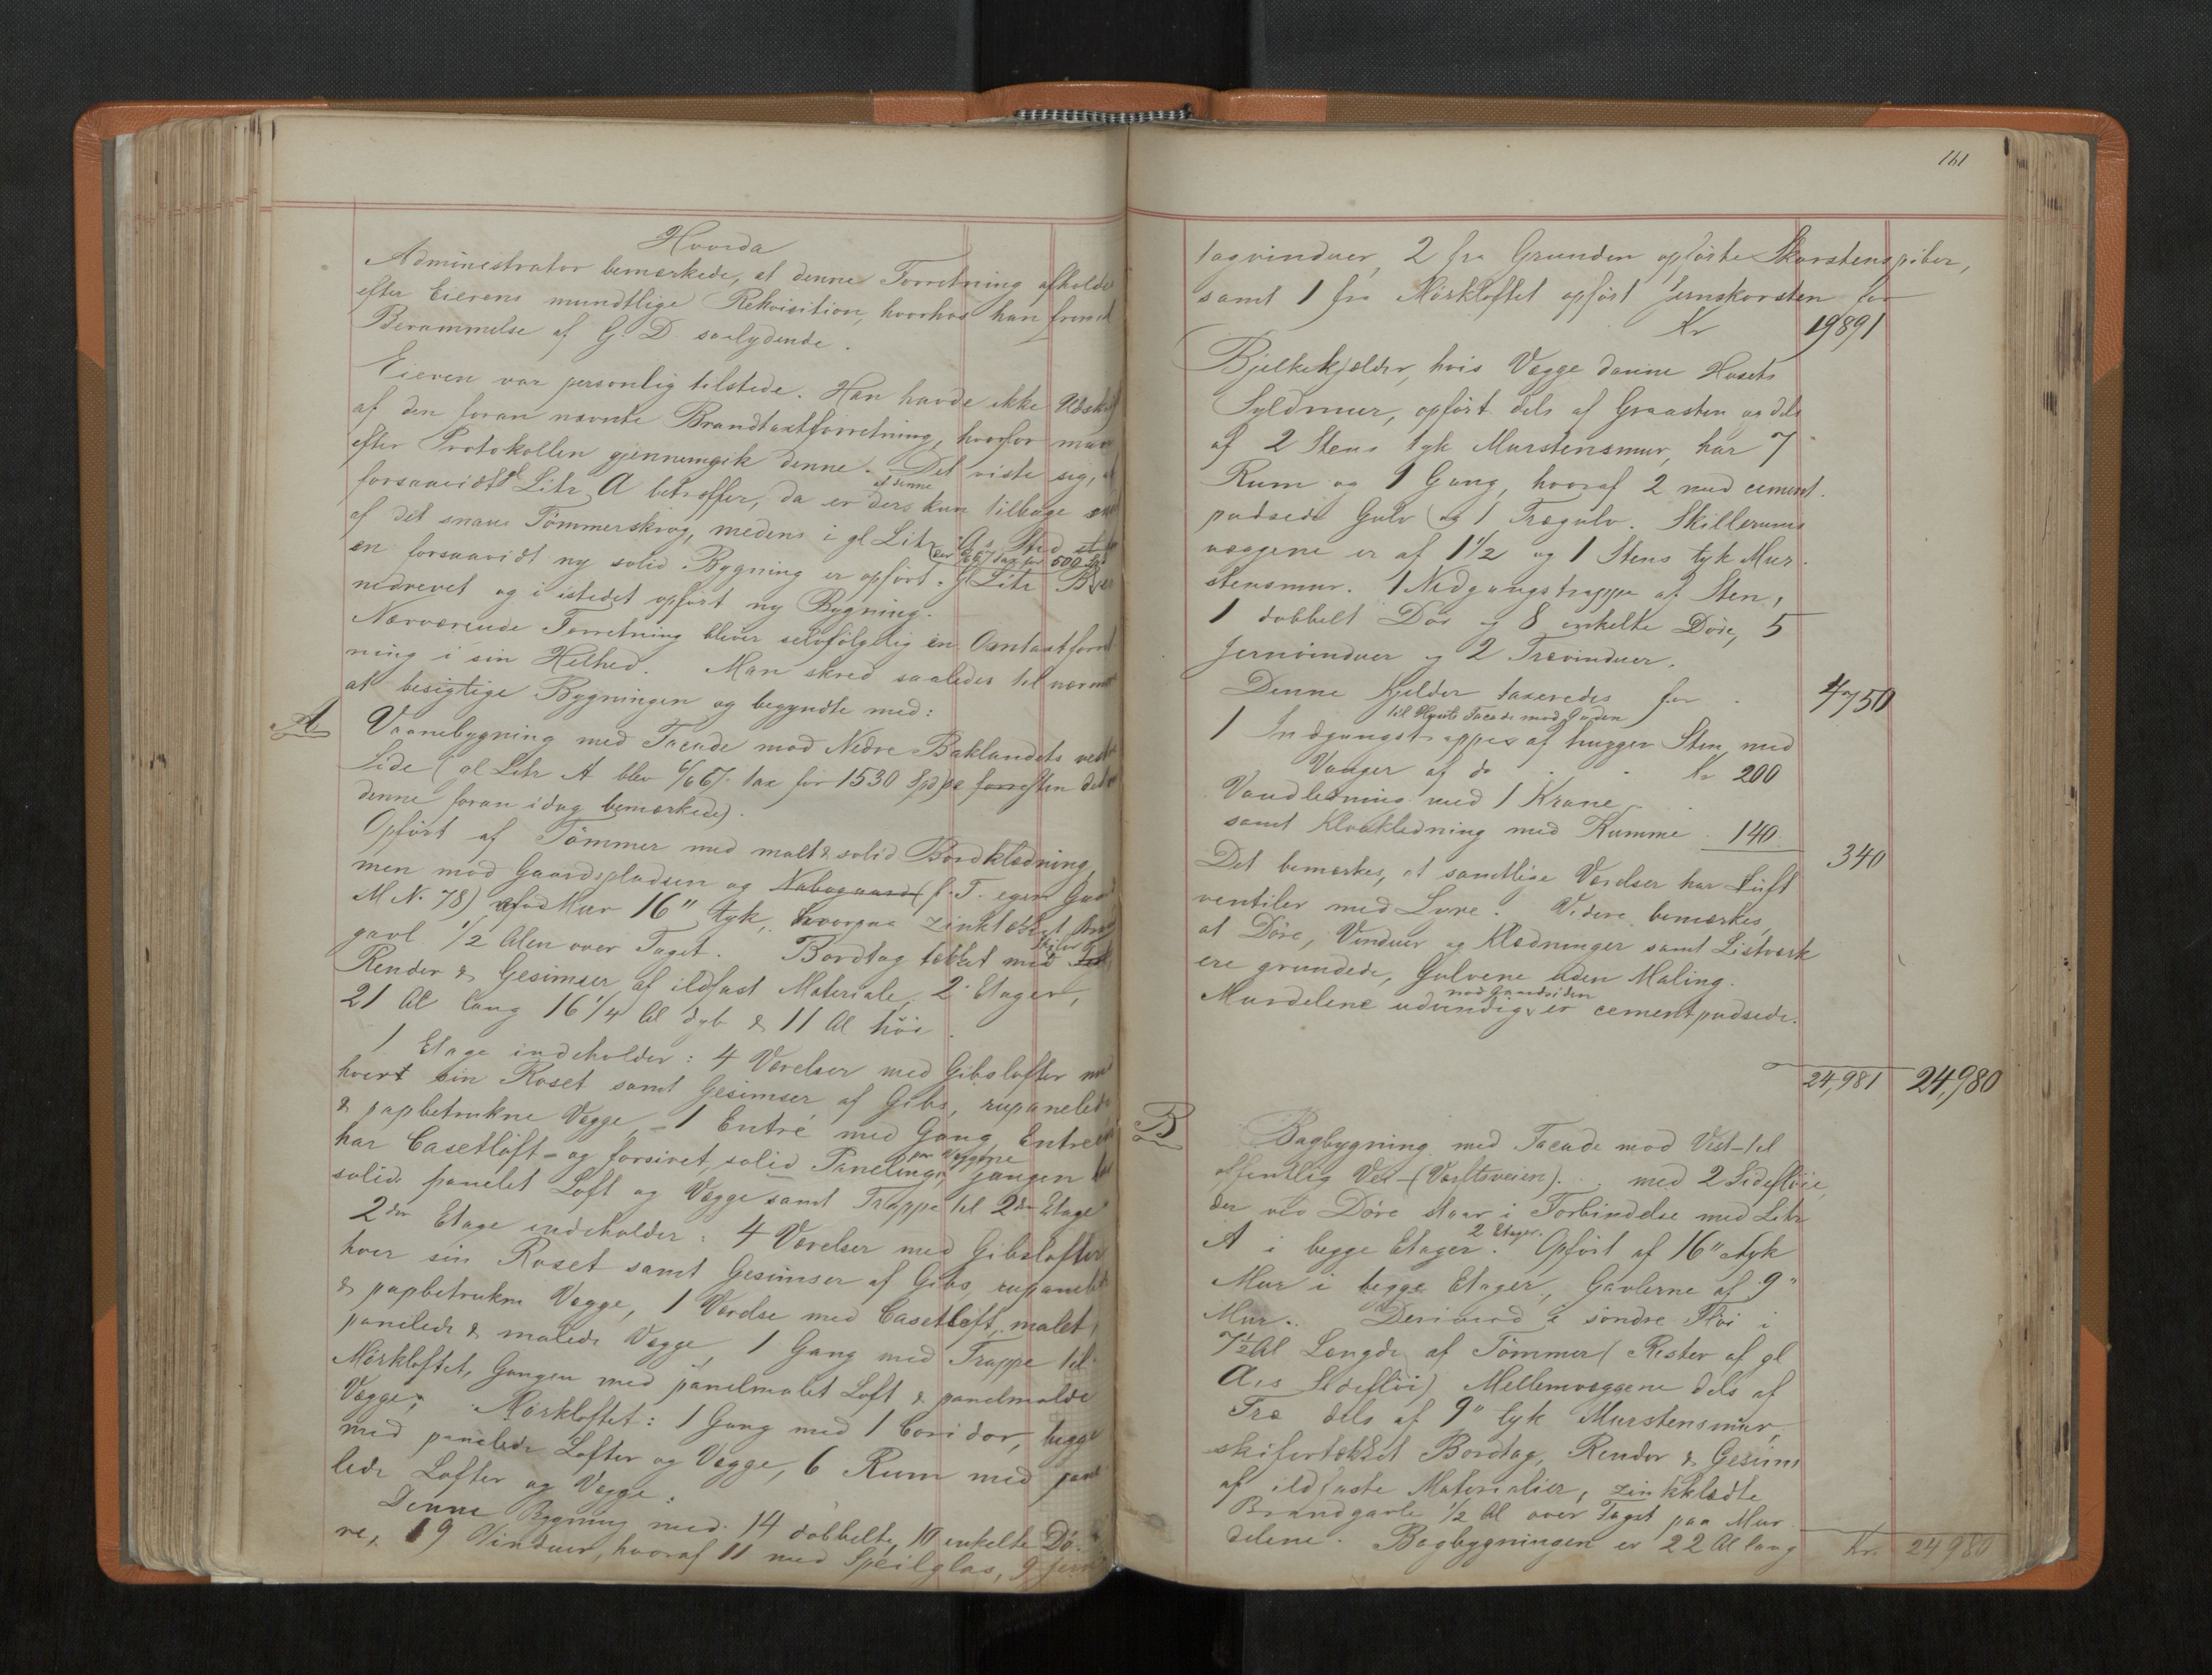 Hvorda
Administrator bemærkede, at denne Forretning afholdes
efter Eierens mundtlige Rekvisition, hvorhos han freml
Berammelse af G. D. saalydende.
Eieren var personlig tilstede. Han havde ikke Udskrift
af den foran nævnte Brandtaxtforretning, hvorfor man
efter Protokollen gjennemgik denne. Det viste sig, at
forsaavidt gl Litr A betræffer, da er der af denne kun tilbage
af det snaue Tømmerskrog, medens i gl Litr A's Sted
en forsaavidt ny solid Bygning er opført. gl Litr B (der 6/67 tax for 500 Spd) er
nedrevet og i istedet opført ny Bygning.
Nærværende Forretning bliver selvfølgelig en Omtaxtforret
ning i sin Helhed. Man skred saaledes til nærmere
at besigtige Bygningen og begyndte med:
A Vaanebygning med Facade mod Nedre Baklandets vestre
Side (gl Litr A blev 6/67 tax for 1530 Spd se forresten det
denne foran idag bemærkede).
Opført af Tømmer med malt & solid Bordklædning,
men mod Gaardspladsen og Nabogaard (f. T. egen Gaard
M N. 78) af Mur 16" tyk, hvorpaa zinktækket Brand
gavl 1/2 Alen over Taget. Bordtag tækket med Skifer
Render & Gesimser af ildfast Materiale, 2 Etager,
21 Al lang 16 1/4 Al dyb & 11 Al høi.
1 Etage indeholder: 4 Værelser med Gibslofter med
hvert sin Roset samt Gesimser af Gibs, rupanelede
& papbetrukne Vægge, – 1 Entré med Gang, Entreen
har Casetloft – og forsiret, solid Paneling paa Væggene, Gangen har
solid panelet Loft og Vægge samt Trappe til 2den Etage
2den Etage indeholder: 4 Værelser med Gibslofter
hver sin Roset samt Gesimser af Gibs, rupanelede
& papbetrukne Vægge, 1 Værelse med Casetloft, malet,
panelede & malede Vægge, 1 Gang med Trappe til
Mørkloftet, Gangen med panelmalet Loft & panelmalde
Vægge, Mørkloftet: 1 Gang med 1 Coridor, begge
med panelede Lofter og Vægge, 6 Rum med pane
lede Lofter og Vægge.
Denne Bygning med 14 dobbelte, 10 enkelte Dø-
re, 19 Vinduer, hvoraf 11 med Speilglas, 9 jern
161
tagvinduer, 2 fra Grunden opførte Skorstenspiber,
samt 1 fra Mørkloftet opført Jernskorsten for
Kr 19891
Bjelkekjælder, hvis Vægge danne Husets
Syldmur, opført dels af Graasten og dels
af 2 Stens tyk Murstensmur, har 7
Rum og 1 Gang, hvoraf 2 med cement.
pudsede Gulv og 1 Trægulv. Skillerums
væggene er af 1 1/2 og 1 Stens tyk Mur.
stensmur. 1 Nedgangstrappe af Sten,
1 dobbelt Dør og 8 enkelte Døre, 5
Jernvinduer og 2 Trævinduer.
Denne Kjelder taxeredes for 4750
1 Indgangstrappe til Husets Facade mod Gaden af hugger Sten med
Vanger af do Kr 200
Vandledning med 1 Krane
samt Kloakledning med Kumme 140
340
Det bemærkes, at samtlige Værelser har Luft
ventiler med Snore. Videre bemærkes,
at Døre, Vinduer og Klædninger samt Listværk
ere grundede, Gulvene uden Maling.
Murdelene udvendig mod Gaardsiden er cementpudsede.
24,981 24,980
B Bagbygning med Facade mod Vest – til
offentlig Vei – . med 2 Sidefløie,
der ved Døre staar i Forbindelse med Litr
A i begge Etager. 2 Etager. Opført af 16" tyk
Mur i begge Etager, Gavlerne af 9"
Mur. Derimod i søndre Fløi i
7 1/2 Al Længde af Tømmer (Rester af gl
A's Sidefløi), Mellemvæggene dels af
Træ dels af 9" tyk Murstensmur,
skifertækket Bordtag, Render & Gesims
af ildfaste Materialier, zinkklædte
Brandgavle 1/2 Al over Taget paa Mur
delene. Bagbygningen er 22 Al lang
Kr. 24 980